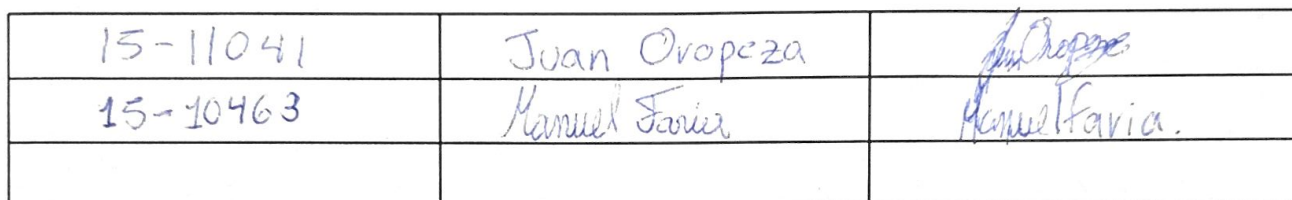 15-11041 Juan Oropeza Juan Oropeza
15-10463 Manuel Faria Manuel Faria.